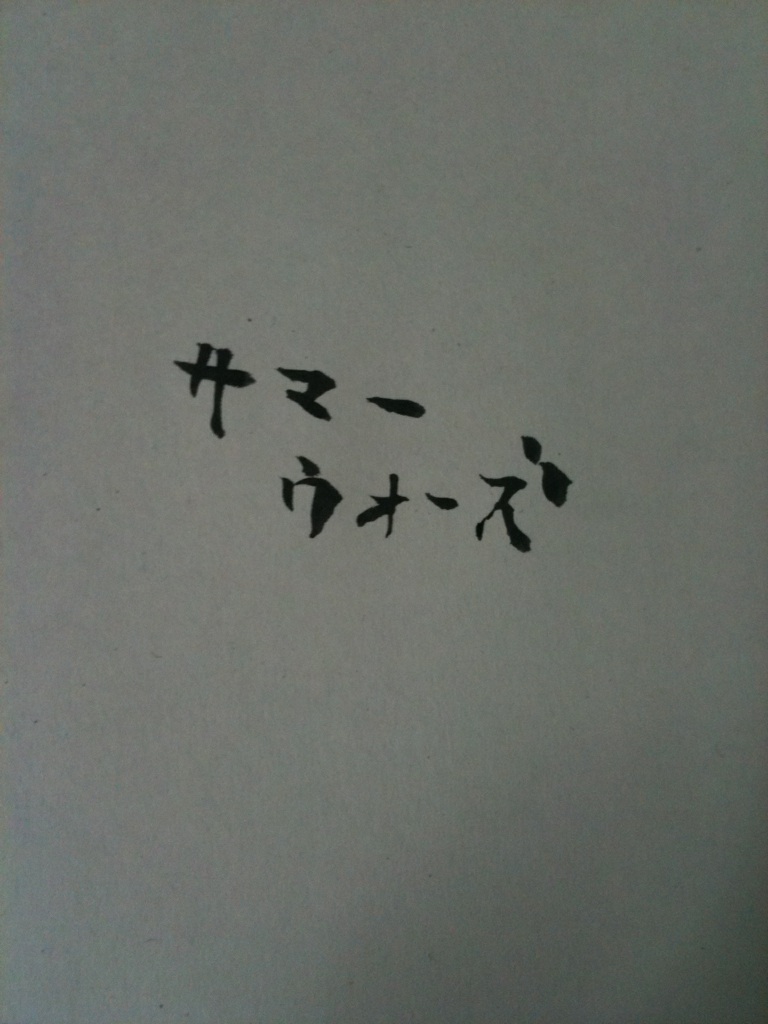 サマー
ウォーズ